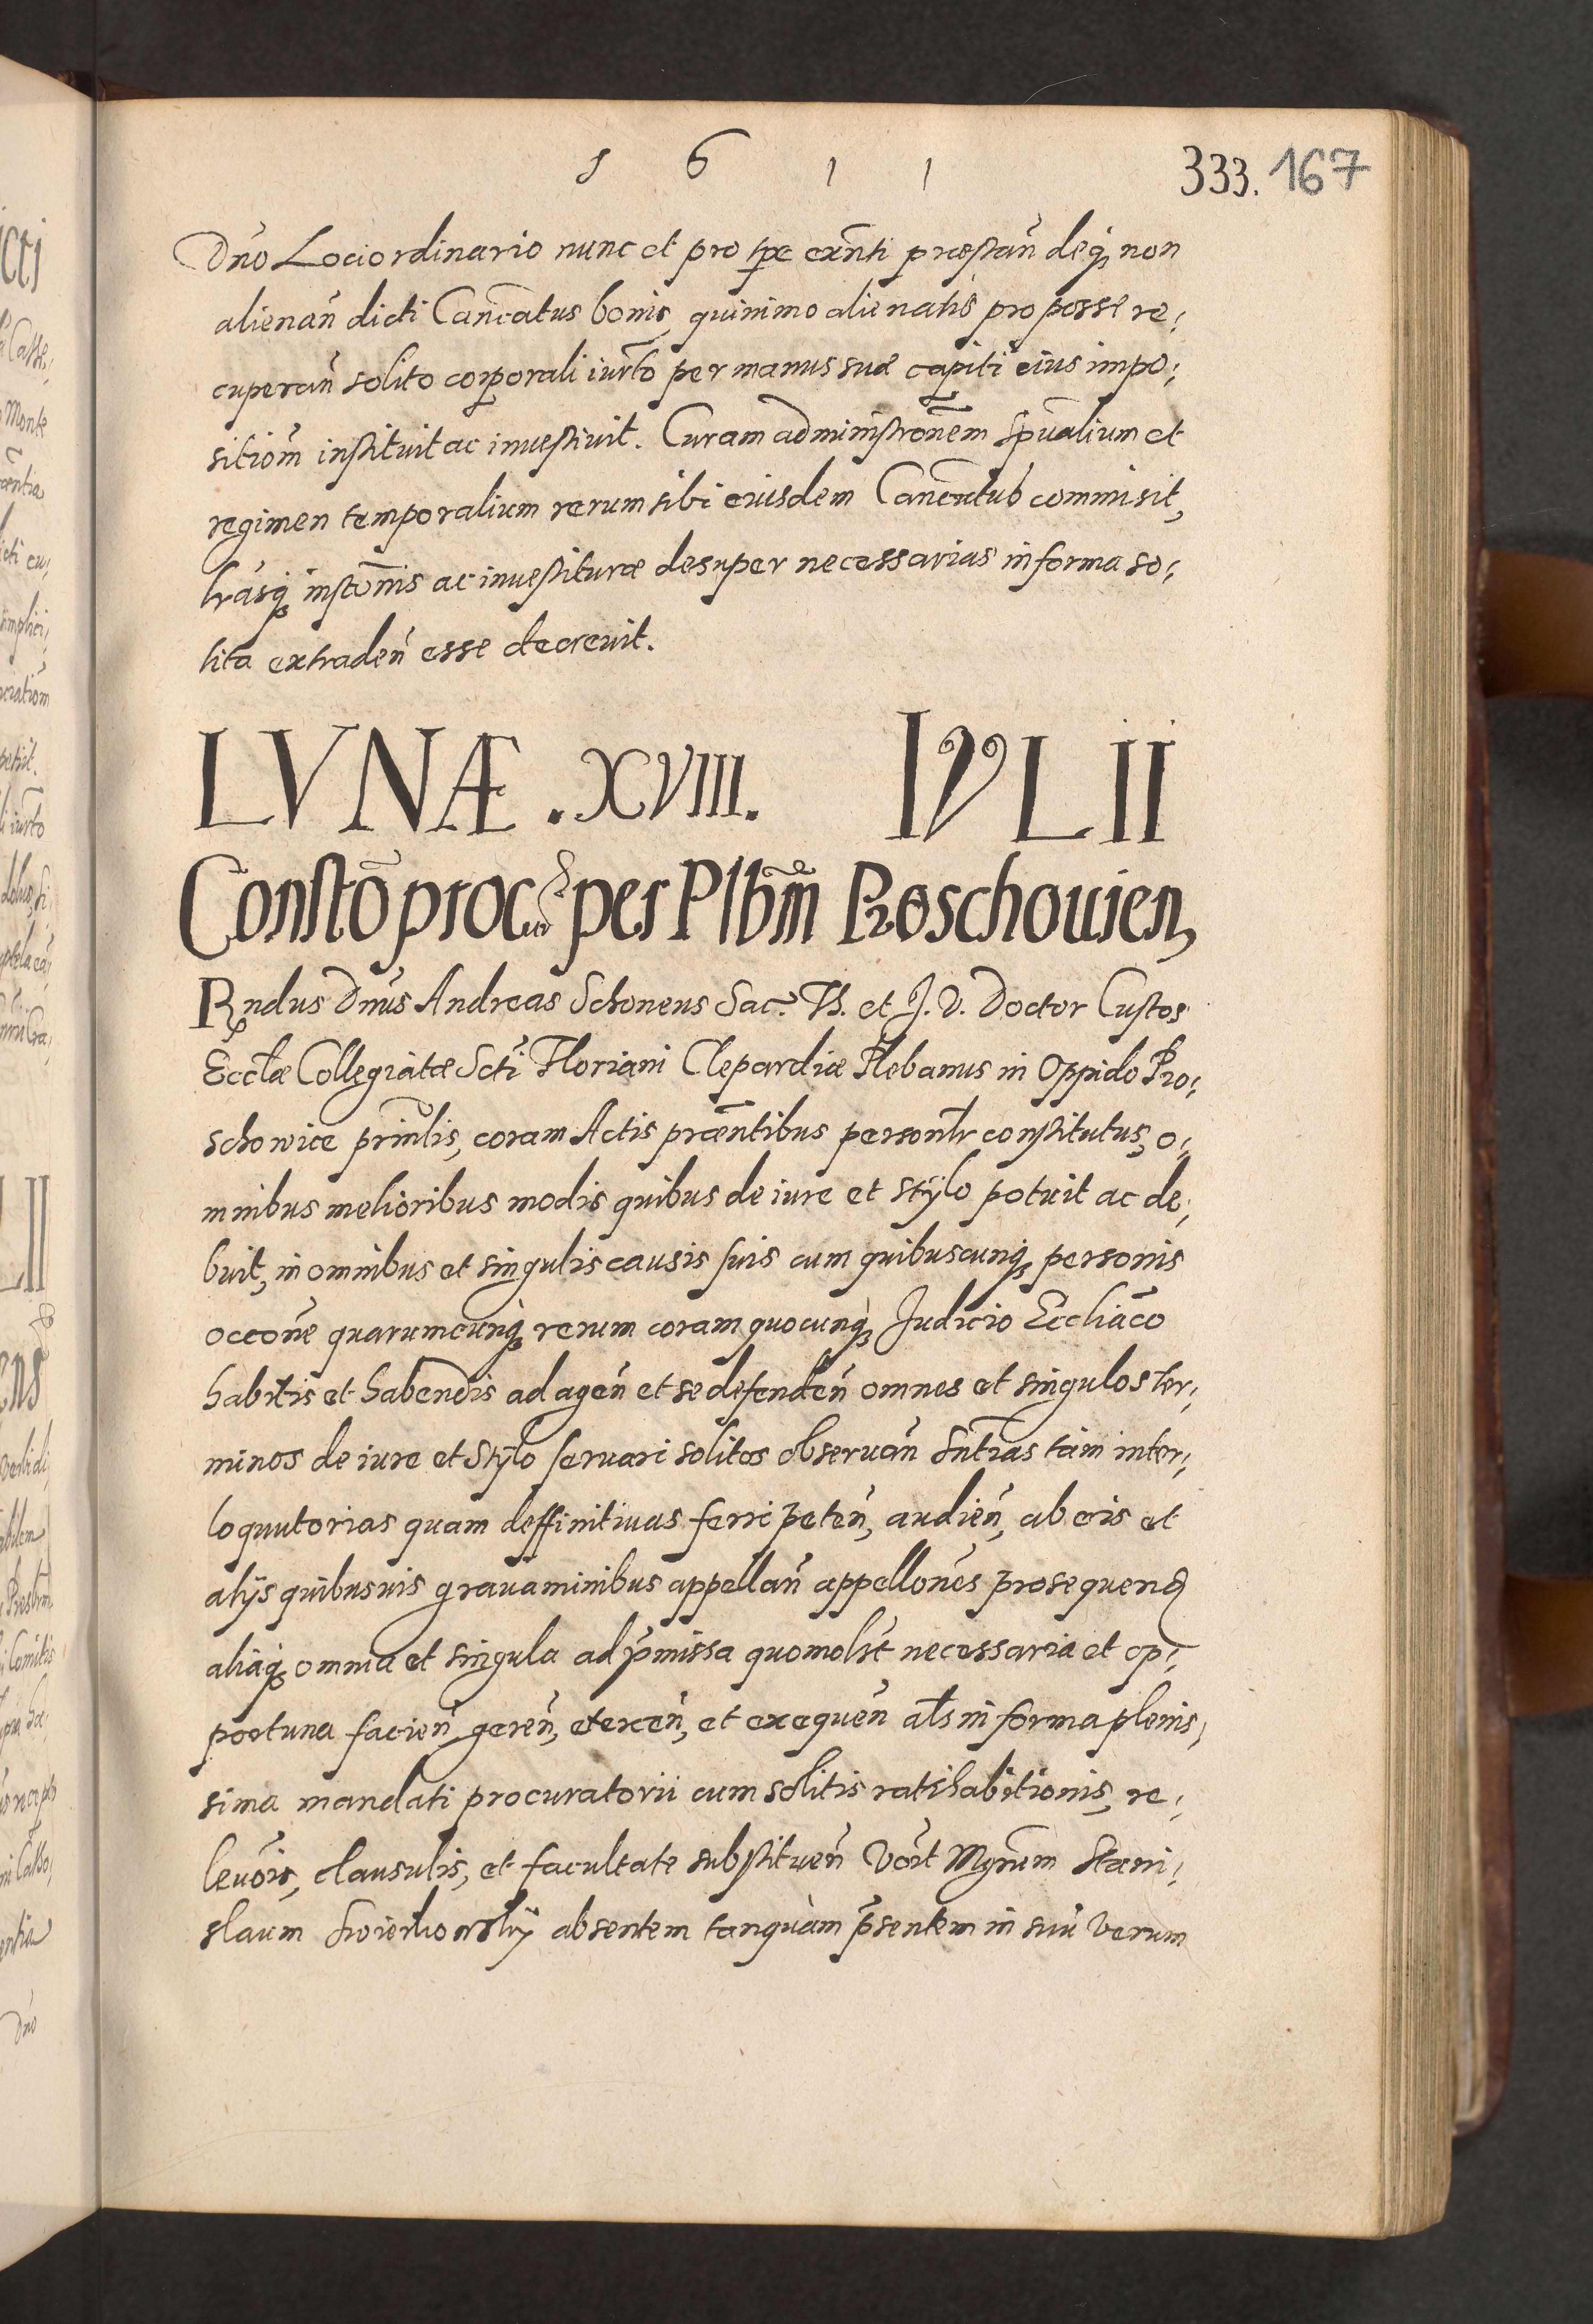 1 6 1 1
333. 167
Dño Loci ordinario nunc et pro tpe exñti præstan̄ deq3 non
alienan̄ dicti Cano͞catus bonis, quinimo alienatis pro posse re:
cuperan̄ solito corporali iurto per manus suæ capiti eius impo:
sitiom̄ instituit ac inuestiuit. Curam administronem Spualium et
regimen temporalium rerum sibi eiusdem Canonctus commisit,
lrasq3 instonis ac inuestituræ desuper necessarias in forma so:
lita extraden̄ esse decreuit.
LVNÆ .XVIII. IVLII
Constō procur per Plbm̄ Proschouien,
Rndus Dnus Andreas Schoneus Sac. Th. et J. V. Doctor Custos
Eccl̄æ Collegiatæ Scti Floriani Clepardiæ Plebanus in Oppido Pro:
schowice prinlis, coram Actis præntibus personlr constitutus, o:
mnibus melioribus modis quibus de iure et stÿlo potuit ac de:
buit, in omnibus et singulis causis suis cum quibuscunq3 personis
occone quarumcunq3 rerum coram quocunq3 Judicio Eccliaco
habitis et habendis ad agen̄ et se defenden̄ omnes et singulos ter:
minos de iure et Stÿlo seruari solitos obseruan̄ sntias tam inter:
loquutorias quam deffinitiuas ferri peten̄, audien̄, ab eis et
alijs quibusuis grauaminibus appellan̄ appellones prosequend
aliaq3 omnia et singula ad pmissa quomolbt necessaria et op:
portuna facien̄ geren̄, exercen̄, et exequen̄ als in forma plenis,
sima mandati procuratorii cum solitis ratihabitionis, re:
leuonis, clausulis, et facultate substituen̄ Vor̄t Mgrum Stani:
slaum absentem tanquam psentem in suu verum